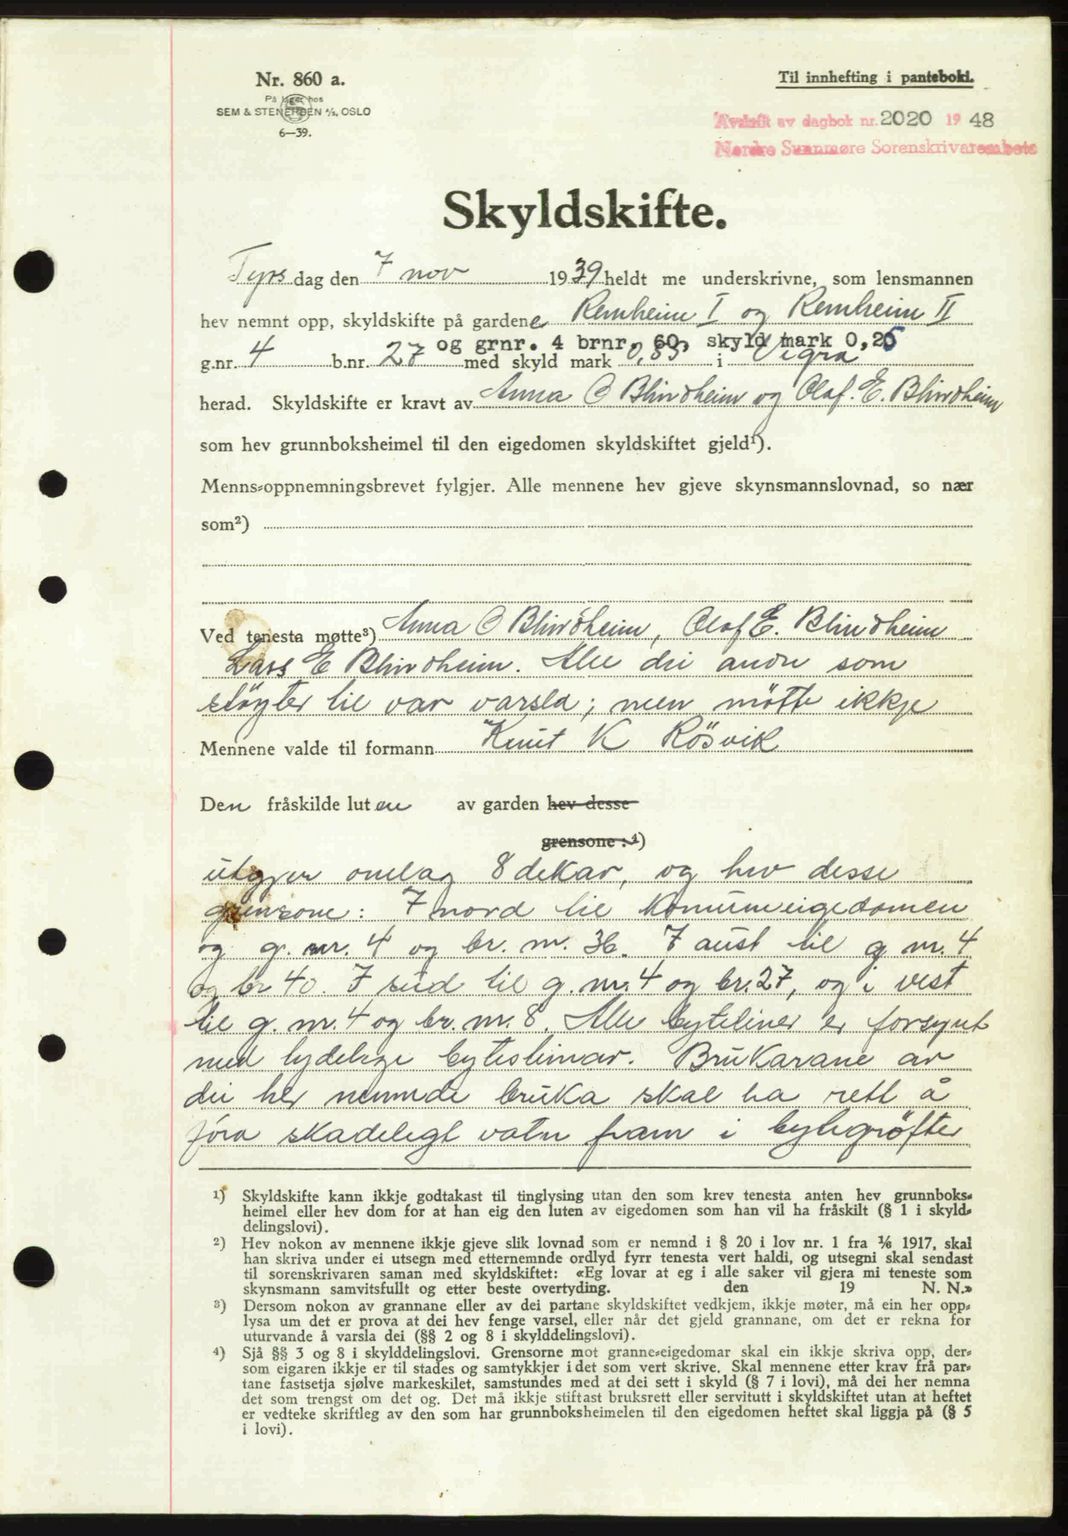 Nr. 860 a.
På lager hos
SEM & STENERSEN A/S, OSLO
6—39.
Til innhefting i pantebok.
Avskrift av dagbok nr. 2020 1948
Nordre Sunnmøre Sorenskrivarembete
Skyldskifte.
Tyrsdag den 7 nov 1939 heldt me underskrivne, som lensmannen
hev nemnt opp, skyldskifte på gardene Remheim I og Remheim II
og grnr. 4 brnr. 60, skyld mark 0,25
g.nr. 4 b.nr. 27 med skyld mark 0,83 i Vigra
herad. Skyldskifte er kravt av Anna O Blindheim og Olaf. E. Blindheim
som hev grunnboksheimel til den eigedomen skyldskiftet gjeld¹).
Menns-oppnemningsbrevet fylgjer. Alle mennene hev gjeve skynsmannslovnad, so nær
som²)
Ved tenesta møtte³) Anna O Blindheim, Olaf E. Blindheim
Lars E Blindheim. Alle dei andre som
støyter til var varsla; men møtte ikkje
Mennene valde til formann Knut K Rösvik
Den fråskilde luten av garden hev desse
grensone:⁴)
utgjer omlag 8 dekar, og hev desse
grensone: I nord til komuneigedomen
og g. nr. 4 og br. nr. 36. I aust til g nr. 4
og br 40. I sud til g. nr. 4 og br. 27, og i vest
til g. nr. 4 og br. nr. 8. Alle byteliner er forsynt
med tydelege bytesteinar. Brukarane av
dei her nemnde bruka skal ha rett å
föra skadelegt vatn fram i bytegrøfter
¹) Skyldskifte kann ikkje godtakast til tinglysing utan den som krev tenesta anten hev grunnboks-
heimel eller hev dom for at han eig den luten av eigedomen som han vil ha fråskilt (§ 1 i skyld-
delingslovi).
²) Hev nokon av mennene ikkje gjeve slik lovnad som er nemnd i § 20 i lov nr. 1 fra 1/6 1917, skal
han skriva under ei utsegn med etternemnde ordlyd fyrr tenesta vert haldi, og utsegni skal sendast
til sorenskrivaren saman med skyldskiftet: «Eg lovar at eg i alle saker vil gjera mi teneste som
skynsmann samvitsfullt og etter beste overtyding. den 19 N. N.»
³) Dersom nokon av grannane eller av dei partane skyldskiftet vedkjem, ikkje møter, må ein her opp-
lysa um det er prova at dei hev fenge varsel, eller når det gjeld grannane, om det er rekna for
uturvande å varsla dei (§§ 2 og 8 i skylddelingslovi).
⁴) Sjå §§ 3 og 8 i skylddelingslovi. Grensorne mot granne-eigedomar skal ein ikkje skriva opp, der-
som eigaren ikkje er til stades og samtykkjer i det som vert skrive. Skal mennene etter krav frå par-
tane fastsetja sjølve markeskilet, samstundes med at dei sett i skyld (§ 7 i lovi), må dei her nemna
det som trengst om det og. Det må ikkje stiftast bruksrett eller servitutt i skyldskiftet utan at heftet
er vedteke skriftleg av den som har grunnboksheimelen til den eigedomen heftet skal liggja på (§ 5
i lovi).